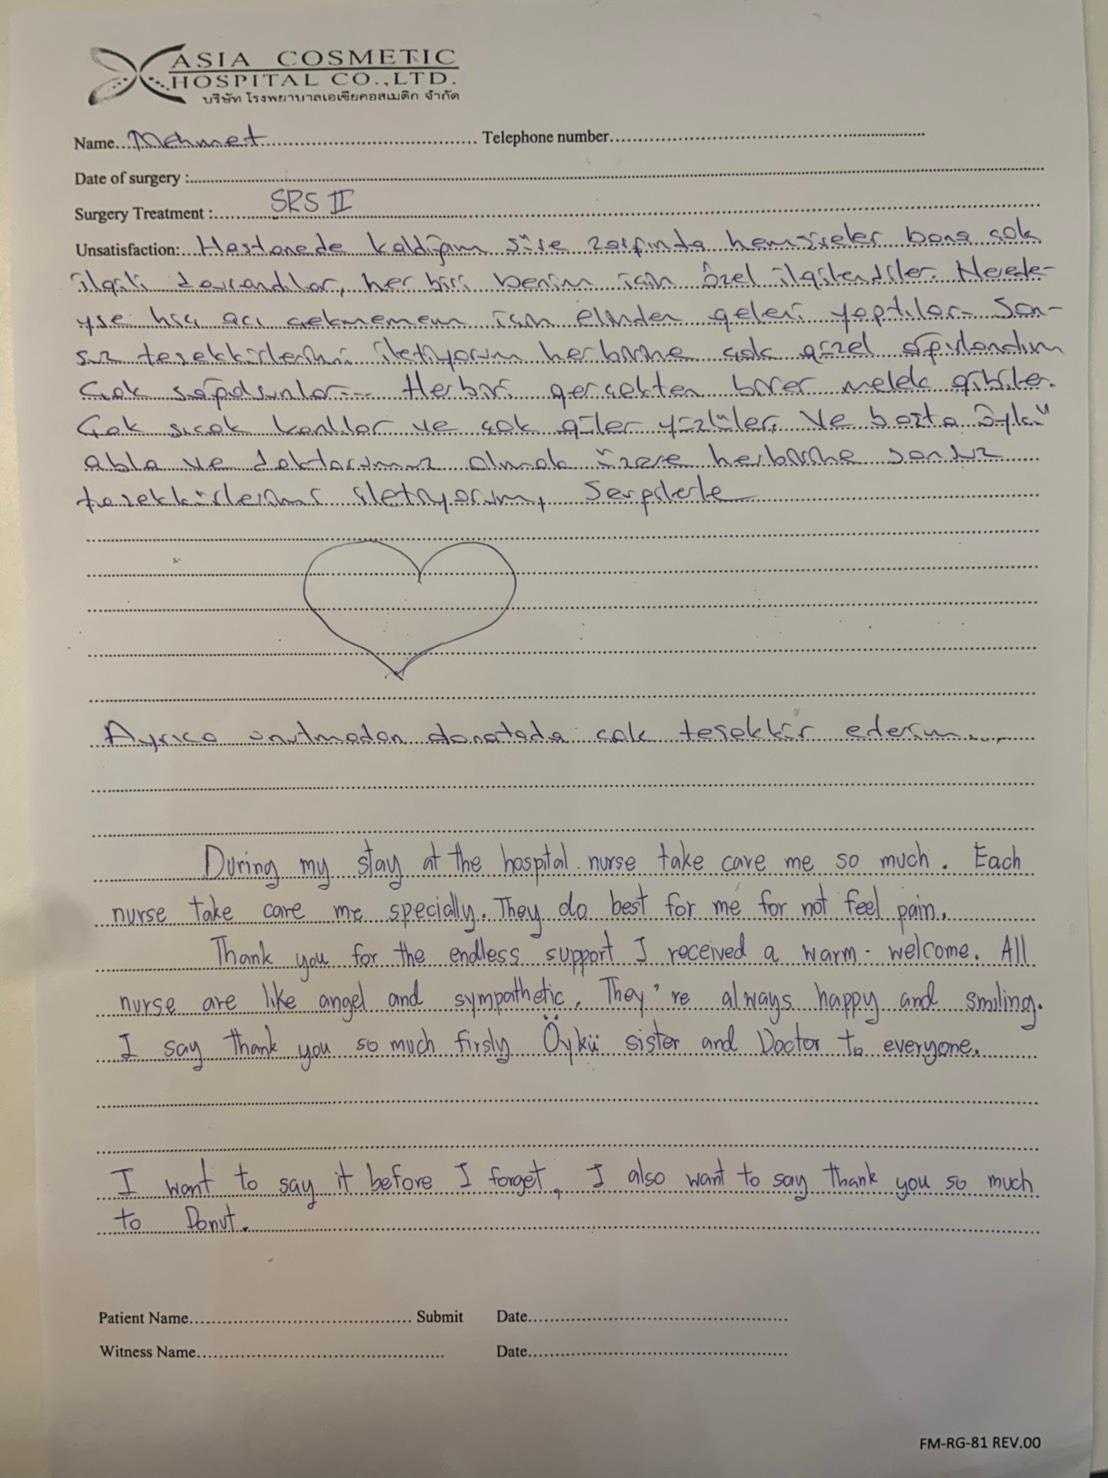 ASIA COSMETIC
HOSPITAL CO.,LTD.
บริษัท โรงพยาบาลเอเซียคอสเมติก จำกัด
Name..Mehmet.......... Telephone number..........
Date of surgery :..........
Surgery Treatment :.......SRS II..........
Unsatisfaction: Hastanede kaldığım süre zarfında hemşireler bana çok
ilgili davrandılar, her biri benim için özel ilgilendiler. Nerede-
yse hiç acı çekmemem için elinden geleni yaptılar. Son-
suz teşekkürlerimi iletiyorum herbirine çok güzel ağırlandım
Çok sağolsunlar... Herbiri gerçekten birer melek gibiler.
Çok sıcak kanlılar ve çok güler yüzlüler, Ve başta Öykü
abla ve doktorumuz olmak üzere herbirine sonsuz
teşekkürlerimi iletiyorum, Sevgilerle
Ayrıca unutmadan donatada çok teşekkür ederim....
During my stay at the hospital nurse take care me so much. Each
nurse take care me specially. They do best for me for not feel pain.
Thank you for the endless support I received a warm-welcome. All
nurse are like angel and sympathetic. They're always happy and smiling.
I say thank you so much firsly Öykü sister and Doctor to everyone.
I want to say it before I forget, I also want to say thank you so much
to Donut.
Patient Name.......... Submit Date..........
Witness Name.......... Date..........
FM-RG-81 REV.00